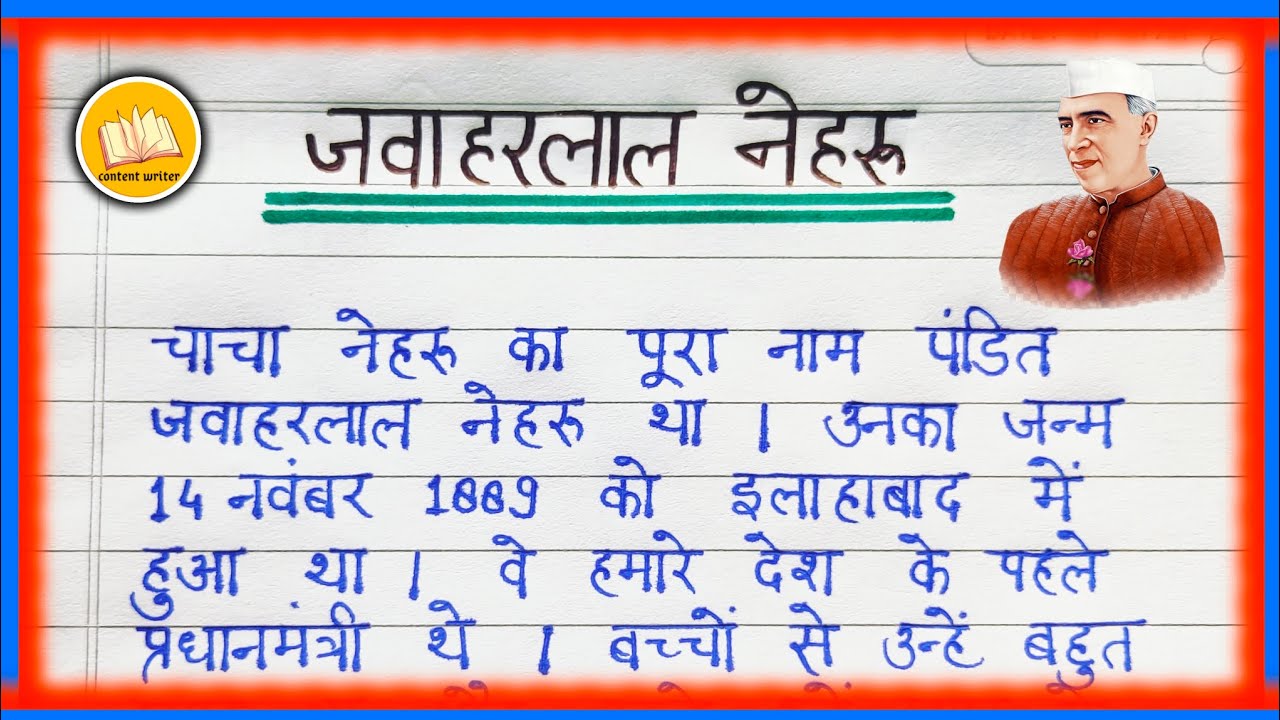 content writer
जवाहरलाल नेहरू
चाचा नेहरू का पूरा नाम पंडित
जवाहरलाल नेहरू था ।  उनका जन्म
14 नवंबर 1889 को इलाहाबाद में
हुआ था । वे हमारे देश के पहले
प्रधानमंत्री थे । बच्चों से उन्हें बहुत